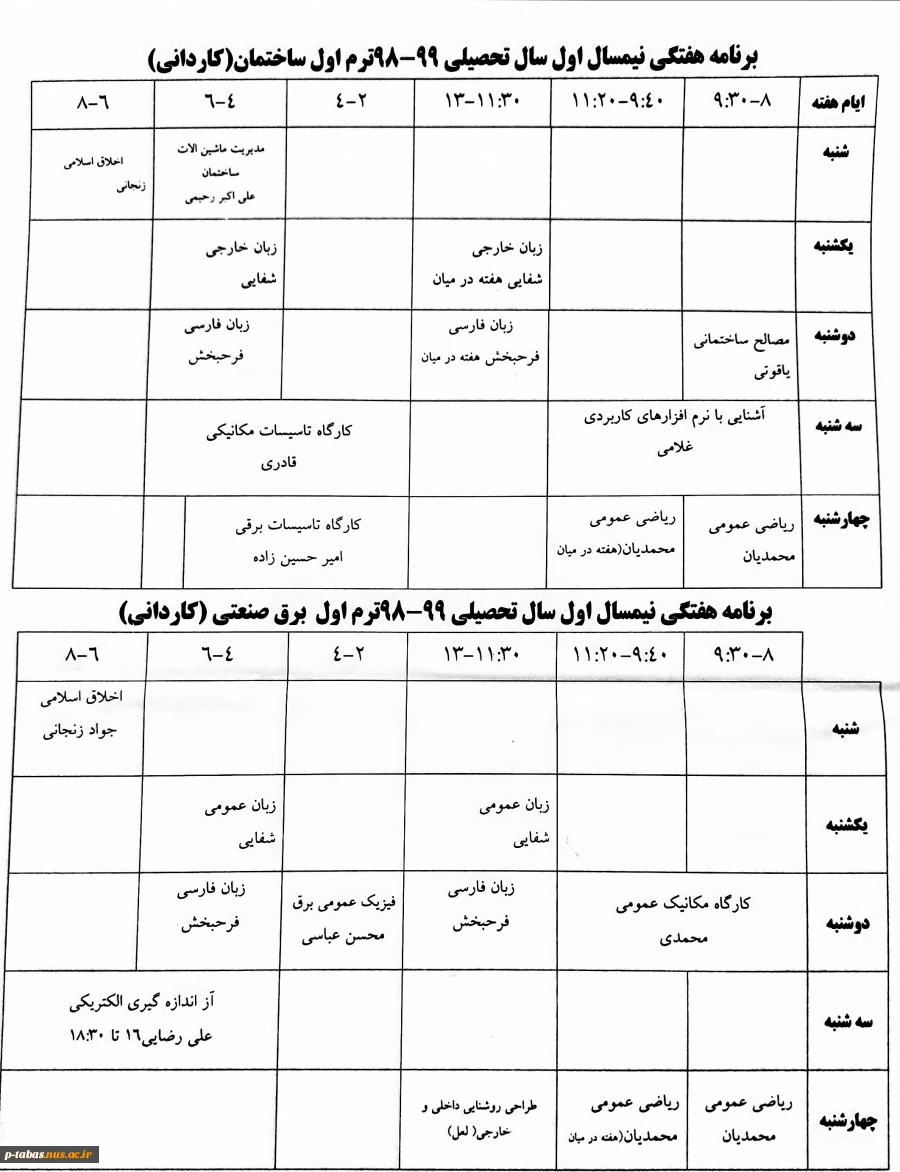 برنامه هفتگی نیمسال اول سال تحصیلی ۹۹-۹۸ترم اول ساختمان(کاردانی)
ایام هفته ۸-۹:۳۰ ۹:۴۰-۱۱:۲۰ ۱۱:۳۰-۱۳ ۲-۴ ۴-۶ ۶-۸
شنبه
مدیریت ماشین الات
ساختمان
علی اکبر رحیمی
اخلاق اسلامی
زنجانی
یکشنبه
زبان خارجی
شفایی هفته در میان
زبان خارجی
شفایی
دوشنبه
مصالح ساختمانی
یاقوتی
زبان فارسی
فرحبخش هفته در میان
زبان فارسی
فرحبخش
سه شنبه
آشنایی با نرم افزارهای کاربردی
غلامی
کارگاه تاسیسات مکانیکی
قادری
چهارشنبه
ریاضی عمومی
محمدیان
ریاضی عمومی
محمدیان(هفته در میان
کارگاه تاسیسات برقی
امیر حسین زاده
برنامه هفتگی نیمسال اول سال تحصیلی ۹۹-۹۸ترم اول برق صنعتی (کاردانی)
۸-۹:۳۰ ۹:۴۰-۱۱:۲۰ ۱۱:۳۰-۱۳ ۲-۴ ۴-۶ ۶-۸
شنبه
اخلاق اسلامی
جواد زنجانی
یکشنبه
زبان عمومی
شفایی
زبان عمومی
شفایی
دوشنبه
کارگاه مکانیک عمومی
محمدی
زبان فارسی
فرحبخش
فیزیک عمومی برق
محسن عباسی
زبان فارسی
فرحبخش
سه شنبه
آز اندازه گیری الکتریکی
علی رضایی۱۶ تا ۱۸:۳۰
چهارشنبه
ریاضی عمومی
محمدیان
ریاضی عمومی
محمدیان(هفته در میان
طراحی روشنایی داخلی و
خارجی( لعل)
p-tabas.nus.ac.ir